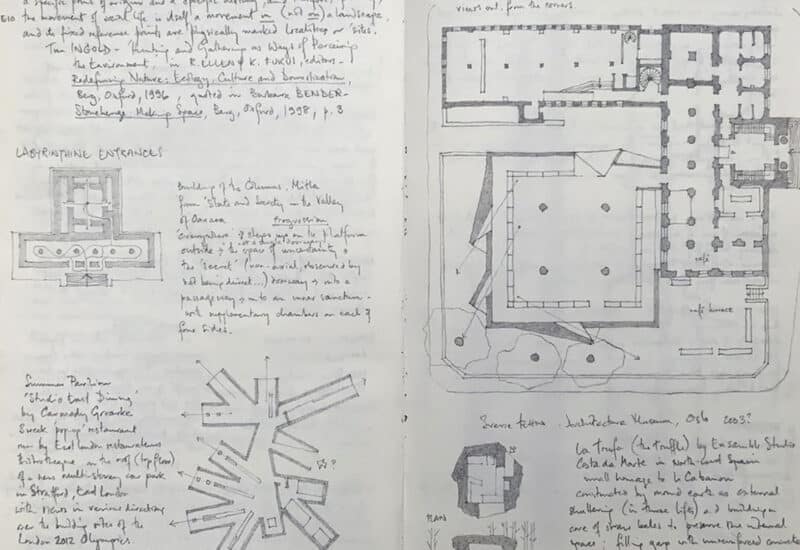 a specific point of origin and a specific
E10 the movement of social life is itself a movement in (not on) a landscape,
and its fixed reference points are physically marked localities or 'sites.
Tim INGOLD - Hunting and Gathering as Ways of Perceiving
the Environment, in R. ELLEN & K. FUKUI, editors -
Redefining Nature: Ecology, Culture and Domestication,
Berg, Oxford, 1996, quoted in Barbara BENDER -
Stonehenge: Making Space, Berg, Oxford, 1998, p. 3
LABYRINTHINE ENTRANCES
Building of the Columns. Mitla
from 'State and Society in the Valley
of Oaxaca
progression
steps up on to platform
outside → or a single doorway
the space of uncertainty →
the 'secret' (non-axial, observed by
not being direct...) doorway → into a
passageway → into an inner sanctum -
with supplementary chambers on each of
four sides.
Summer Pavilion
'Studio East Dining'
by Carmody Groarke
3 week pop-up restaurant
run by East London restaurateurs
Bistrotheque on the roof (top floor)
of a new multi-storey car park
in Stratford, East London
with views in various directions
over the building sites of the
London 2012 Olympics.
?
??
views out from the corners.
café
café terrace
Sverre Fehn. Architecture Museum, Oslo 2003?
La Trufa (the truffle) by Ensamble Studio
Costa da Morte in north-west Spain
small homage to Le Cabanon
constructed by mound earth as external
shuttering (in three lifts) and building a
core of straw bales to preserve the internal
space: filling gap with unreinforced concrete
PLAN